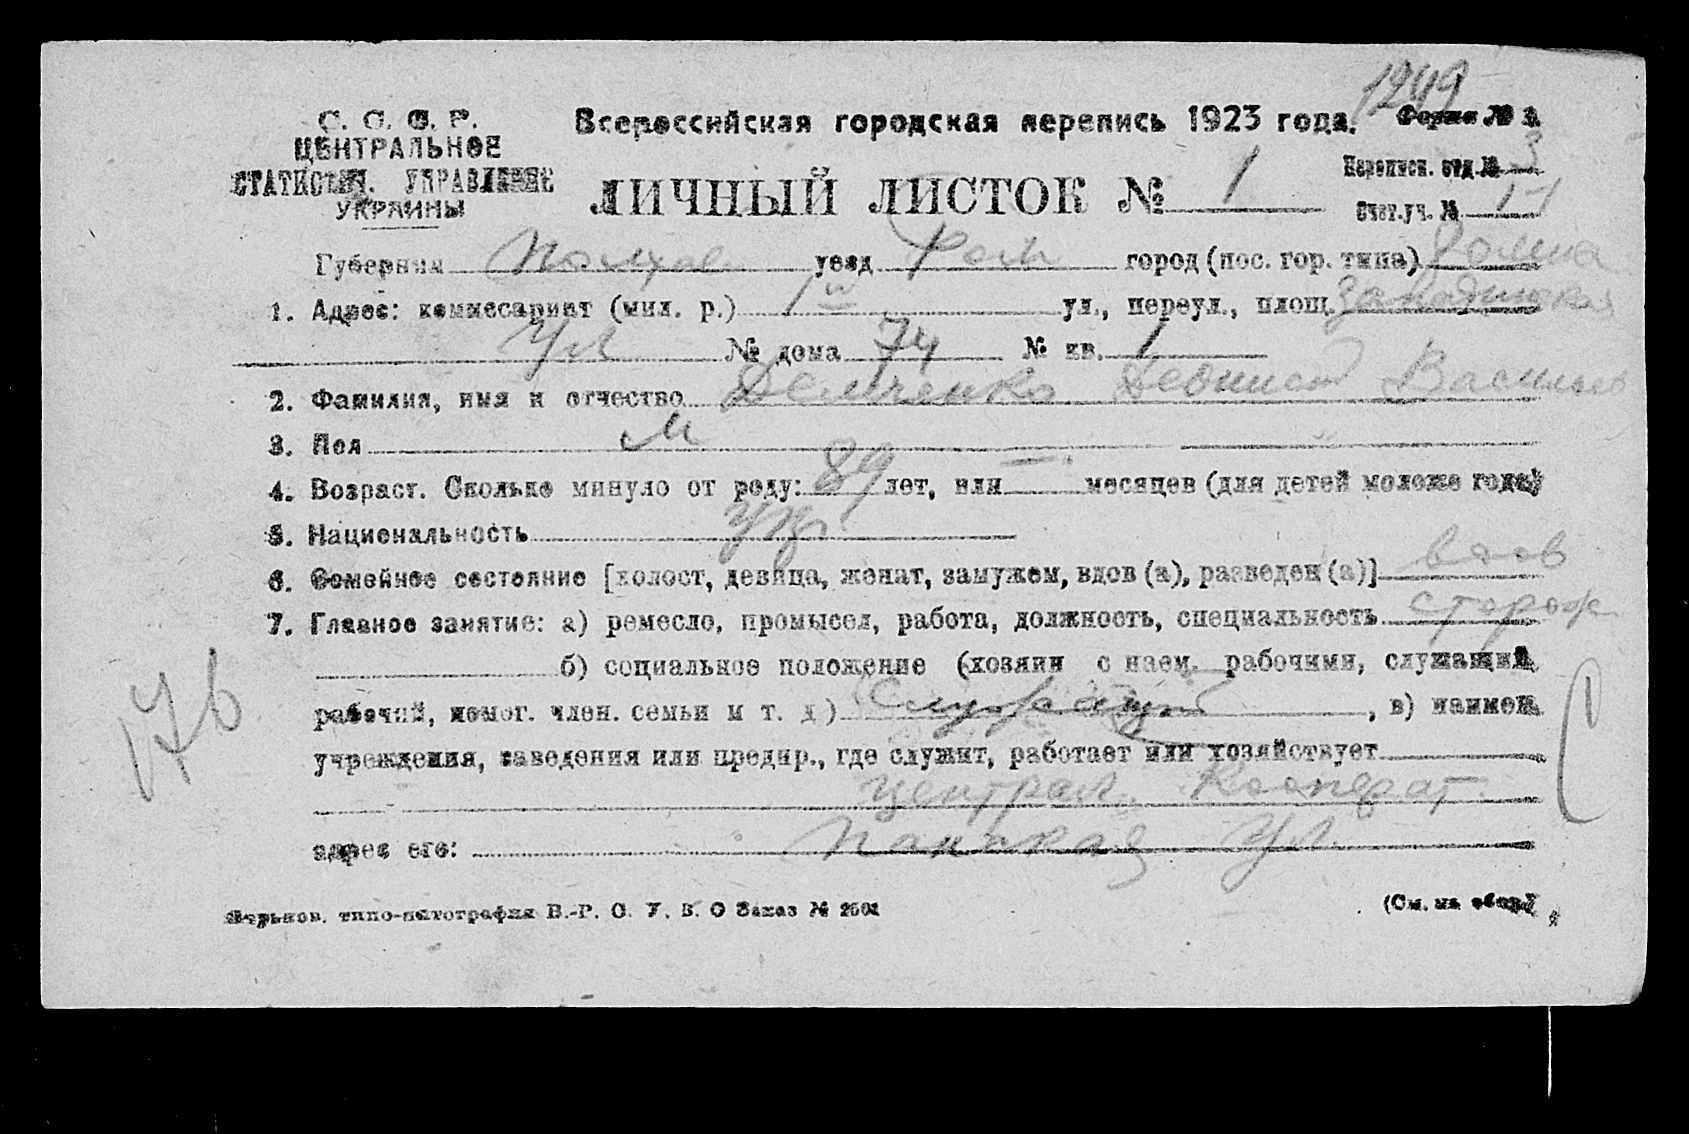 1249
С. С. С. Р.
ЦЕНТРАЛЬНОЕ
СТАТИСТИЧ. УПРАВЛЕНИЕ
УКРАИНЫ
Всероссийская городская перепись 1923 года.
Форма № 2
ЛИЧНЫЙ ЛИСТОК № 1
Переписн. отд. № 3
Счет. уч. №
Губерния Полтав. уезд Ром город (пос. гор. типа) Ромна
1. Адрес: коммесариат (мил. р.) 1й ул., переул., площ.
Ул № дома 74 № кв. 1
2. Фамилия, имя и отчество Демченко Деонисий Васильев
3. Пол М
4. Возраст. Сколько минуло от роду: 89 лет, или — месяцев (для детей моложе года)
5. Национальность Укр.
6. Семейное состояние [холост, девица, женат, замужем, вдов (а), разведен (а)] вдов
7. Главное занятие: а) ремесло, промысел, работа, должность, специальность сторож
б) социальное положение (хозяин с наем. рабочими, служащий,
рабочий, помог. член. семьи и т. д) Служащий, в) наимен.
учреждения, заведения или предпр., где служит, работает или хозяйствует
Централ. Кооперат
адрес его: Ул.
176
Харьков. типо-литография В.-Р. О. У. В. О Заказ №
(См. на обор.)